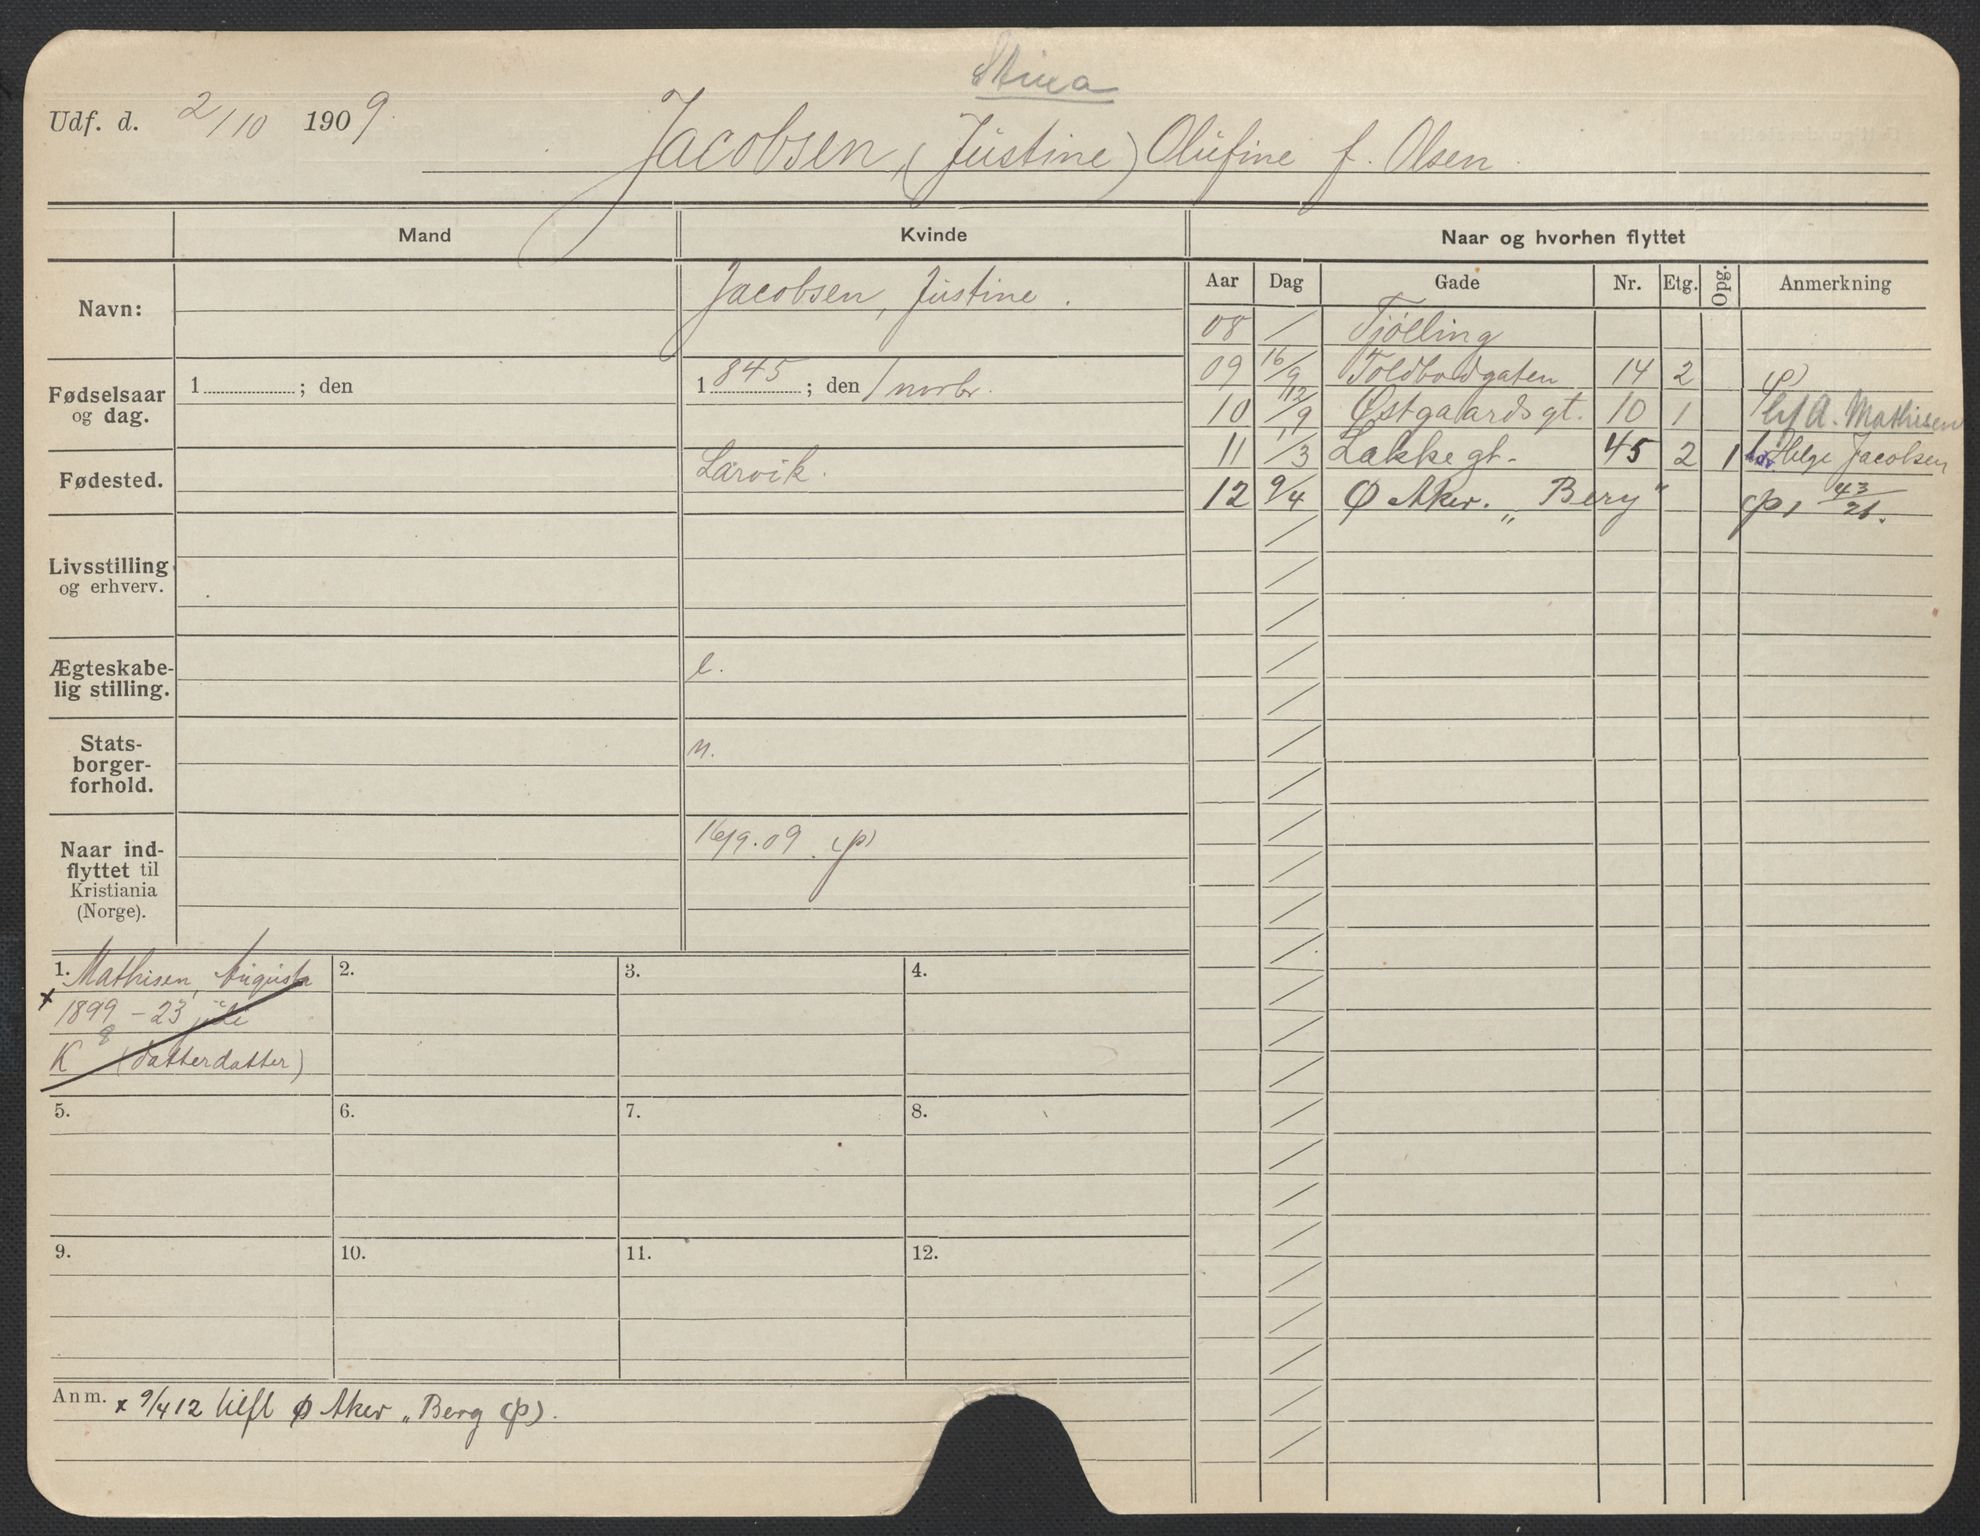 Stina
Udf. d. 2/10 1909.
Jacobsen, (Justine) Olufine f. Olsen.
Mand Kvinde Naar og hvorhen flyttet
Aar Dag Gade Nr. Etg. Opg. Anmerkning
Navn: Jacobsen, Justine.
08 / Tjølling
Fødselsaar og dag. 1 ; den 1 845 ; den 1 novbr.
09 16/9 Toldbodgaten 14 2 (p)
10 12/9 Østgaardsgt. 10 1 h/ A. Mathisen
11 11/3 Lakkegt. 45 2 1 Helge Jacobsen
12 9/4 Ø Aker. „Berg" (p) 43/21.
Fødested. Larvik.
Livsstilling
og erhverv.
Ægteskabe-
lig stilling. e.
Stats-
borger-
forhold. n.
Naar ind-
flyttet til
Kristiania
(Norge). 16/9.09. (p)
1. Mathisen, Augusta
x 1899 - 23 juli
8
K (datterdatter)
2.
3.
4.
5.
6.
7.
8.
9.
10.
11.
12.
Anm. x 9/4 12 tilfl Ø Aker „Berg (p).